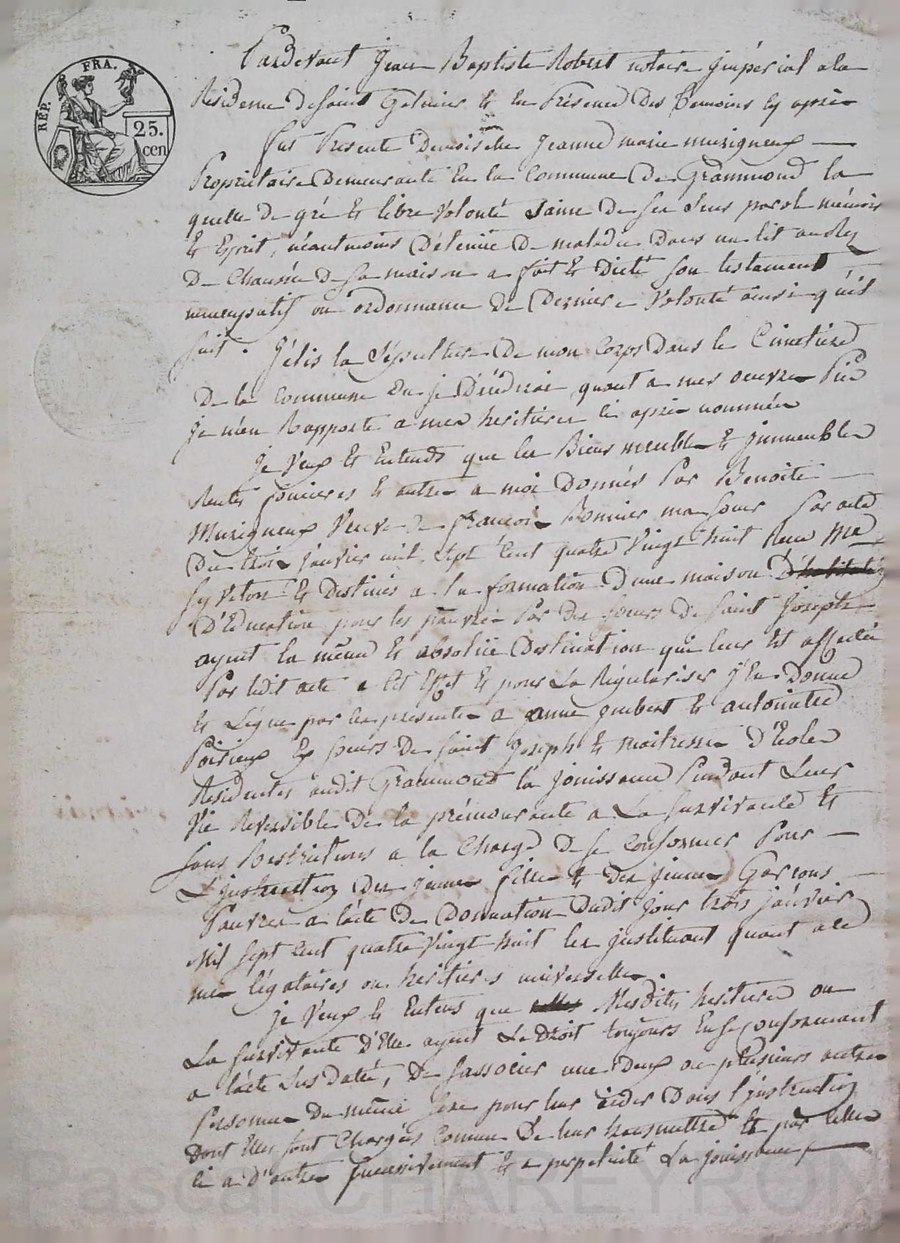 RÉP. FRA.
25.
cen
Pardevant Jean Baptiste Robert notaire jmpérial ala
Résidence de Saint Galmier & En Présence Des Temoins cy après
fut Presente Demoiselle Jeanne marie murigneux
Propriétaire Demeurante En la Commune De Grammond la
quelle de gré & libre volonté saine de ses sens parole mémoire
& Esprit, néantmoins Détenüe De maladie dans un lit au Rez
De Chaussée De sa maison a fait & Dicté son testament
nuncupatif ou ordonnance de Derniere volonté ainsi qu'il
suit. J'élis la sépulture De mon Corps Dans le Cimetière
De la Commune ou je Décederai quant a mes oeuvres Pie
Je m'en Rapporte a mes heritières ci après nommées
Je Veux & Entends que les Biens meubles & jmmeubles
Rentes foncieres & autres a moi Donnés Par Benoite
Murigneux Veuve de François Bonnier ma soeur Par acte
Du trois janvier mil sept Cent quatre Vingt huit Recu Me
Syveton & Destinés a la formation D'une maison
D'Education pour les pauvres Par des soeurs De Saint Joseph
ayent la même & absolüe Destination qui leur Est affectée
Par ledit acte a Cet Effet & pour La Régulariser J'En Donne
& Légue par les presentes a anne jmbert & antoinette
Poirieux Ex soeurs de Saint Joseph & maitresses D'Ecoles
Résidentes audit Grammond la jouissance Pendant Leur
Vie Reversible De la prémourante a La survivante &
sans Restrictions a la Charge De se Conformer Pour
L'jnstruction Des jeunes filles & Des jeunes Garcons
Pauvres a l'acte De Donnation Dudit jour trois janvier
Mil sept Cent quatre Vingt huit les jnstituant quant a ce
mes légataires ou heritieres universelles.
je Veux & Entens que Mesdites heritieres ou
La survivante D'Elles ayent Le Droit toujours En se Conformant
a l'acte susdaté, De s'associer une Deux ou plusieurs autres
Personnes Du même sexe pour les aider Dans l'jnstruction
Dont Elles sont Chargées Comme De leur transmettre & par Celles
ci a D'autres successivement & a perpétuité La jouissance
Pascal CHAREYRON